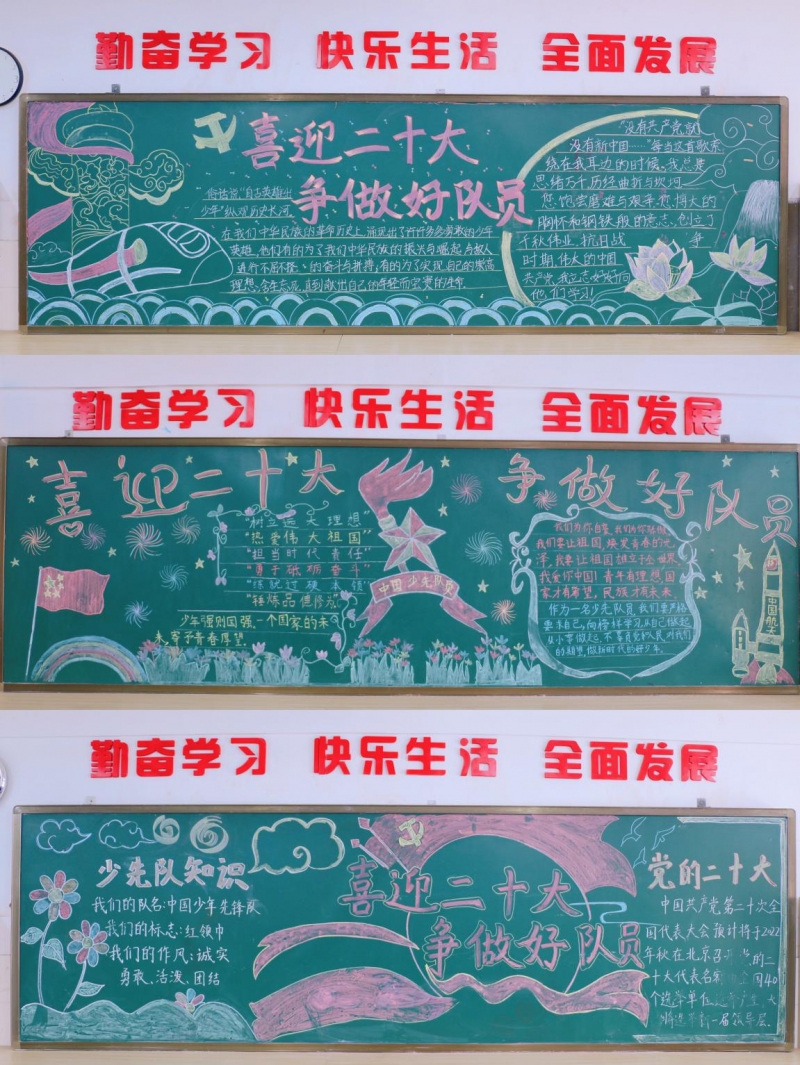 勤奋学习 快乐生活 全面发展
喜迎二十大
争做好队员
俗话说"自古英雄出
少年"纵观历史长河
在我们中华民族的革命历史上,涌现出了许许多多勇敢的少年
英雄,他们有的为了我们中华民族的振兴与崛起与敌人
进行不屈不挠的奋斗与拼搏,有的为了实现自己的崇高
理想,舍生忘死,直到献出自己的年轻而宝贵的生命
"没有共产党就
没有新中国……"每当这首歌萦
绕在我耳边的时候,我总是
思绪万千历经曲折与坎坷
您,饱尝磨难与艰辛,您,博大的
胸怀和钢铁般的意志,创立了
千秋伟业,抗日战争
时期,伟大的中国
共产党,我立志好好向
他们学习!
勤奋学习 快乐生活 全面发展
喜迎二十大 争做好队员
"树立远大理想"
"热爱伟大祖国"
"担当时代责任"
"勇于砥砺奋斗"
"练就过硬本领"
"锤炼品德修为"
少年强则国强,一个国家的未
来,寄予青春厚望.
中国少先队员
我们要让祖国,焕发青春的光
泽,我要让祖国雄立于世界,
我爱你中国!青年有理想,国
家才有希望,民族才有未来
作为一名少先队员,我们要严格
要求自己,向榜样学习,从自己做起
从小事做起,不辜负党和人民对我们
的期望,做新时代的好少年.
中国航天
勤奋学习 快乐生活 全面发展
少先队知识
我们的队名:中国少年先锋队
我们的标志:红领巾
我们的作风:诚实
勇敢、活泼、团结
喜迎二十大
争做好队员
党的二十大
中国共产党第二十次全
国代表大会预计将于2022
年秋在北京召开 党的二
十大代表名额 全国40
个选举单位选举产生,大
将选举新一届领导层.